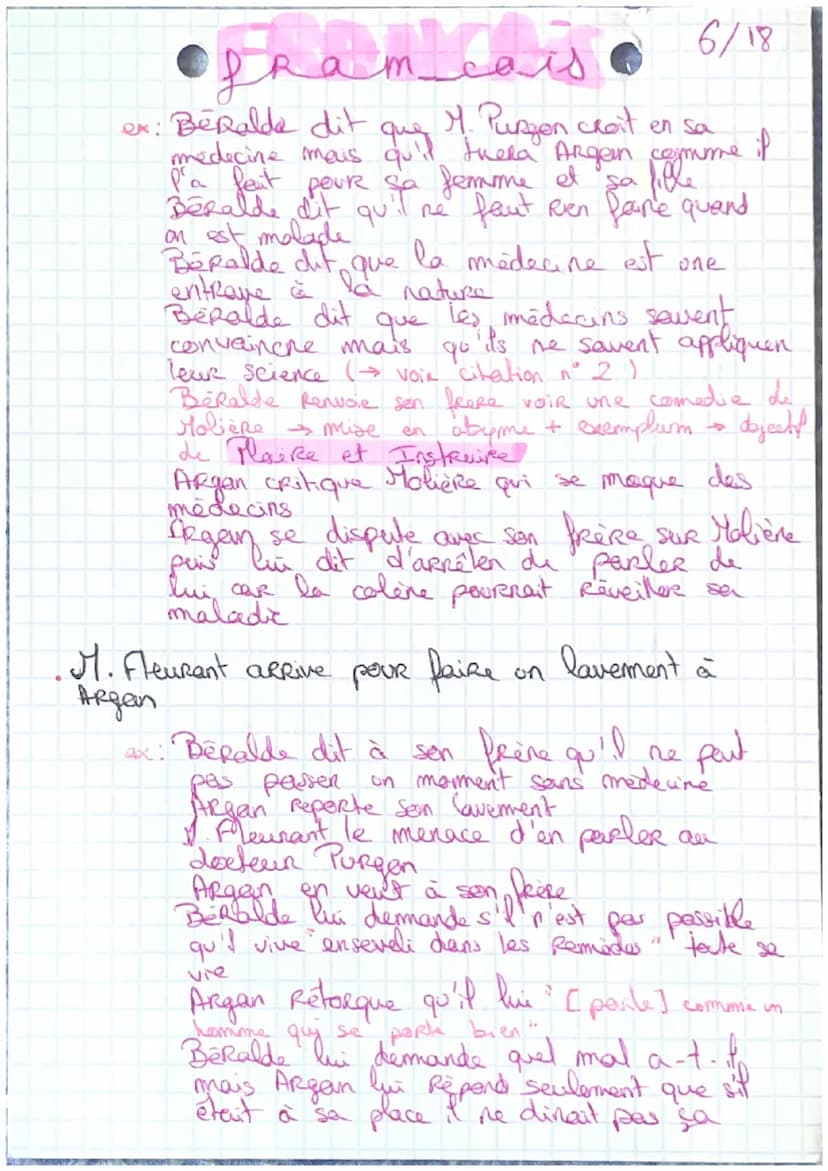 Français
6/18
ex: Béralde dit que M. Purgon croit en sa
médecine mais qu'il tuera Argan comme il
l'a fait pour sa femme et sa fille
Béralde dit qu'il ne faut rien faire quand
on est malade
Béralde dit que la médecine est une
entrave à la nature
Béralde dit que les médecins savent
convaincre mais qu'ils ne savent appliquer
leur science (→ voir citation n° 2)
Béralde renvoie son frère voir une comédie de
Molière → mise en abyme + exemplum → objectif
de Plaire et Instruire
Argan critique Molière qui se moque des
médecins
Argan se dispute avec son frère sur Molière
puis lui dit d'arrêter de parler de
lui car la colère pourrait réveiller sa
maladie
. M. Fleurant arrive pour faire un lavement à
Argan
ex: Béralde dit à son frère qu'il ne peut
pas passer un moment sans médecine
Argan reporte son lavement
M. Fleurant le menace d'en parler au
docteur Purgon
Argan en veut à son frère
Béralde lui demande s'il n'est pas possible
qu'il vive "enseveli dans les remèdes" toute sa
vie
Argan rétorque qu'il lui "[parle] comme un
homme qui se porte bien"
Béralde lui demande quel mal a-t-il,
mais Argan lui répond seulement que s'il
était à sa place il ne dirait pas ça